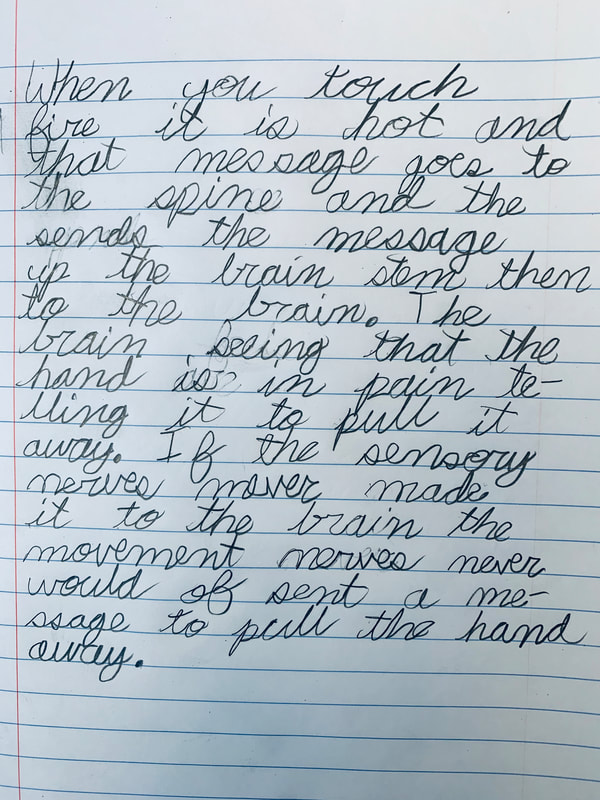 When you touch
fire it is hot and
that message goes to
the spine and the
sends the message
up the brain stem then
to the brain. The
brain seeing that the
hand is in pain te-
lling it to pull it
away. If the sensory
nerves never made
it to the brain the
movement nerves never
would of sent a me-
ssage to pull the hand
away.